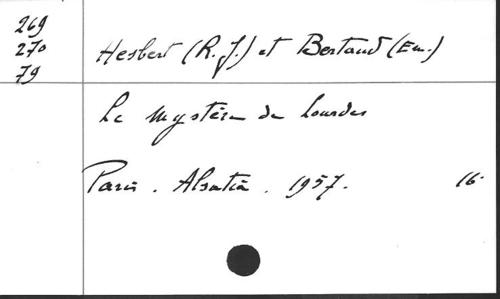 269
270
79
Hesbert (R.J.) et Bertaud (Em.)
Le Mystère de Lourdes
Paris. Alsatia. 1957. 16°